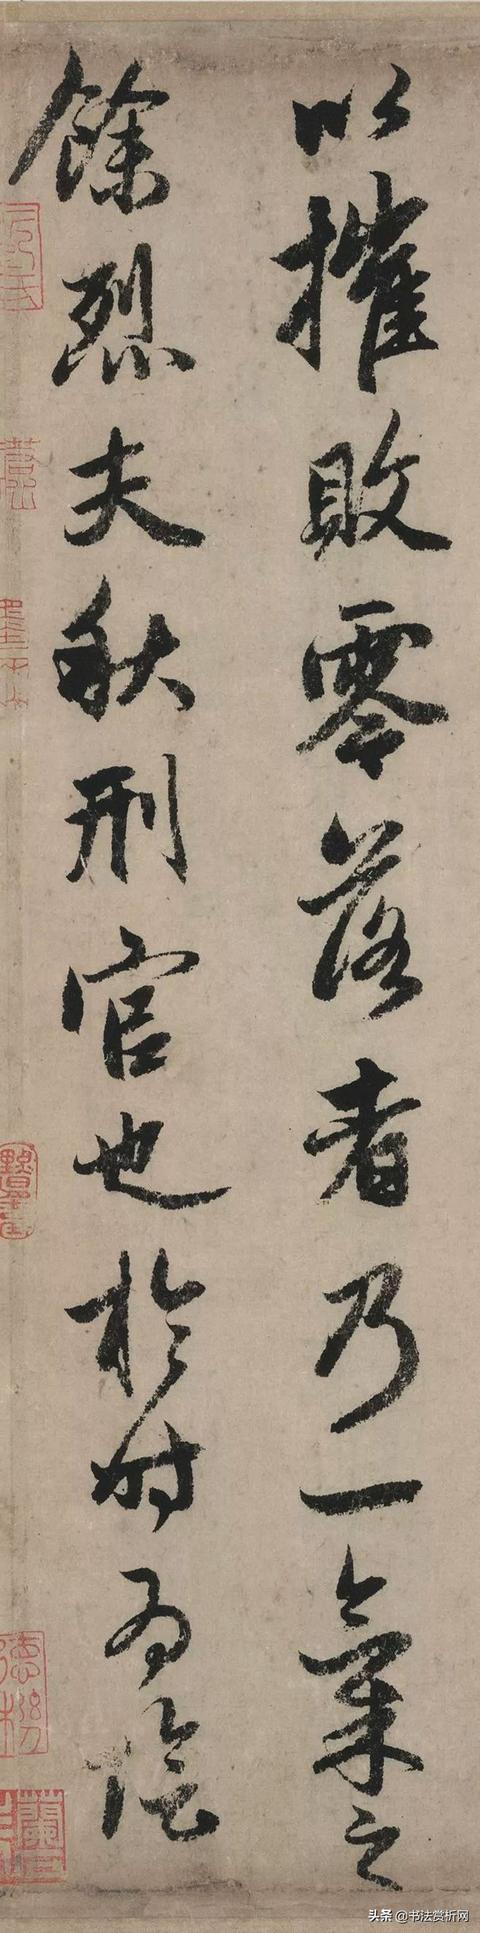 以摧敗零落者乃一氣之
餘烈夫秋刑官也於時為陰
頭条 @书法赏析网